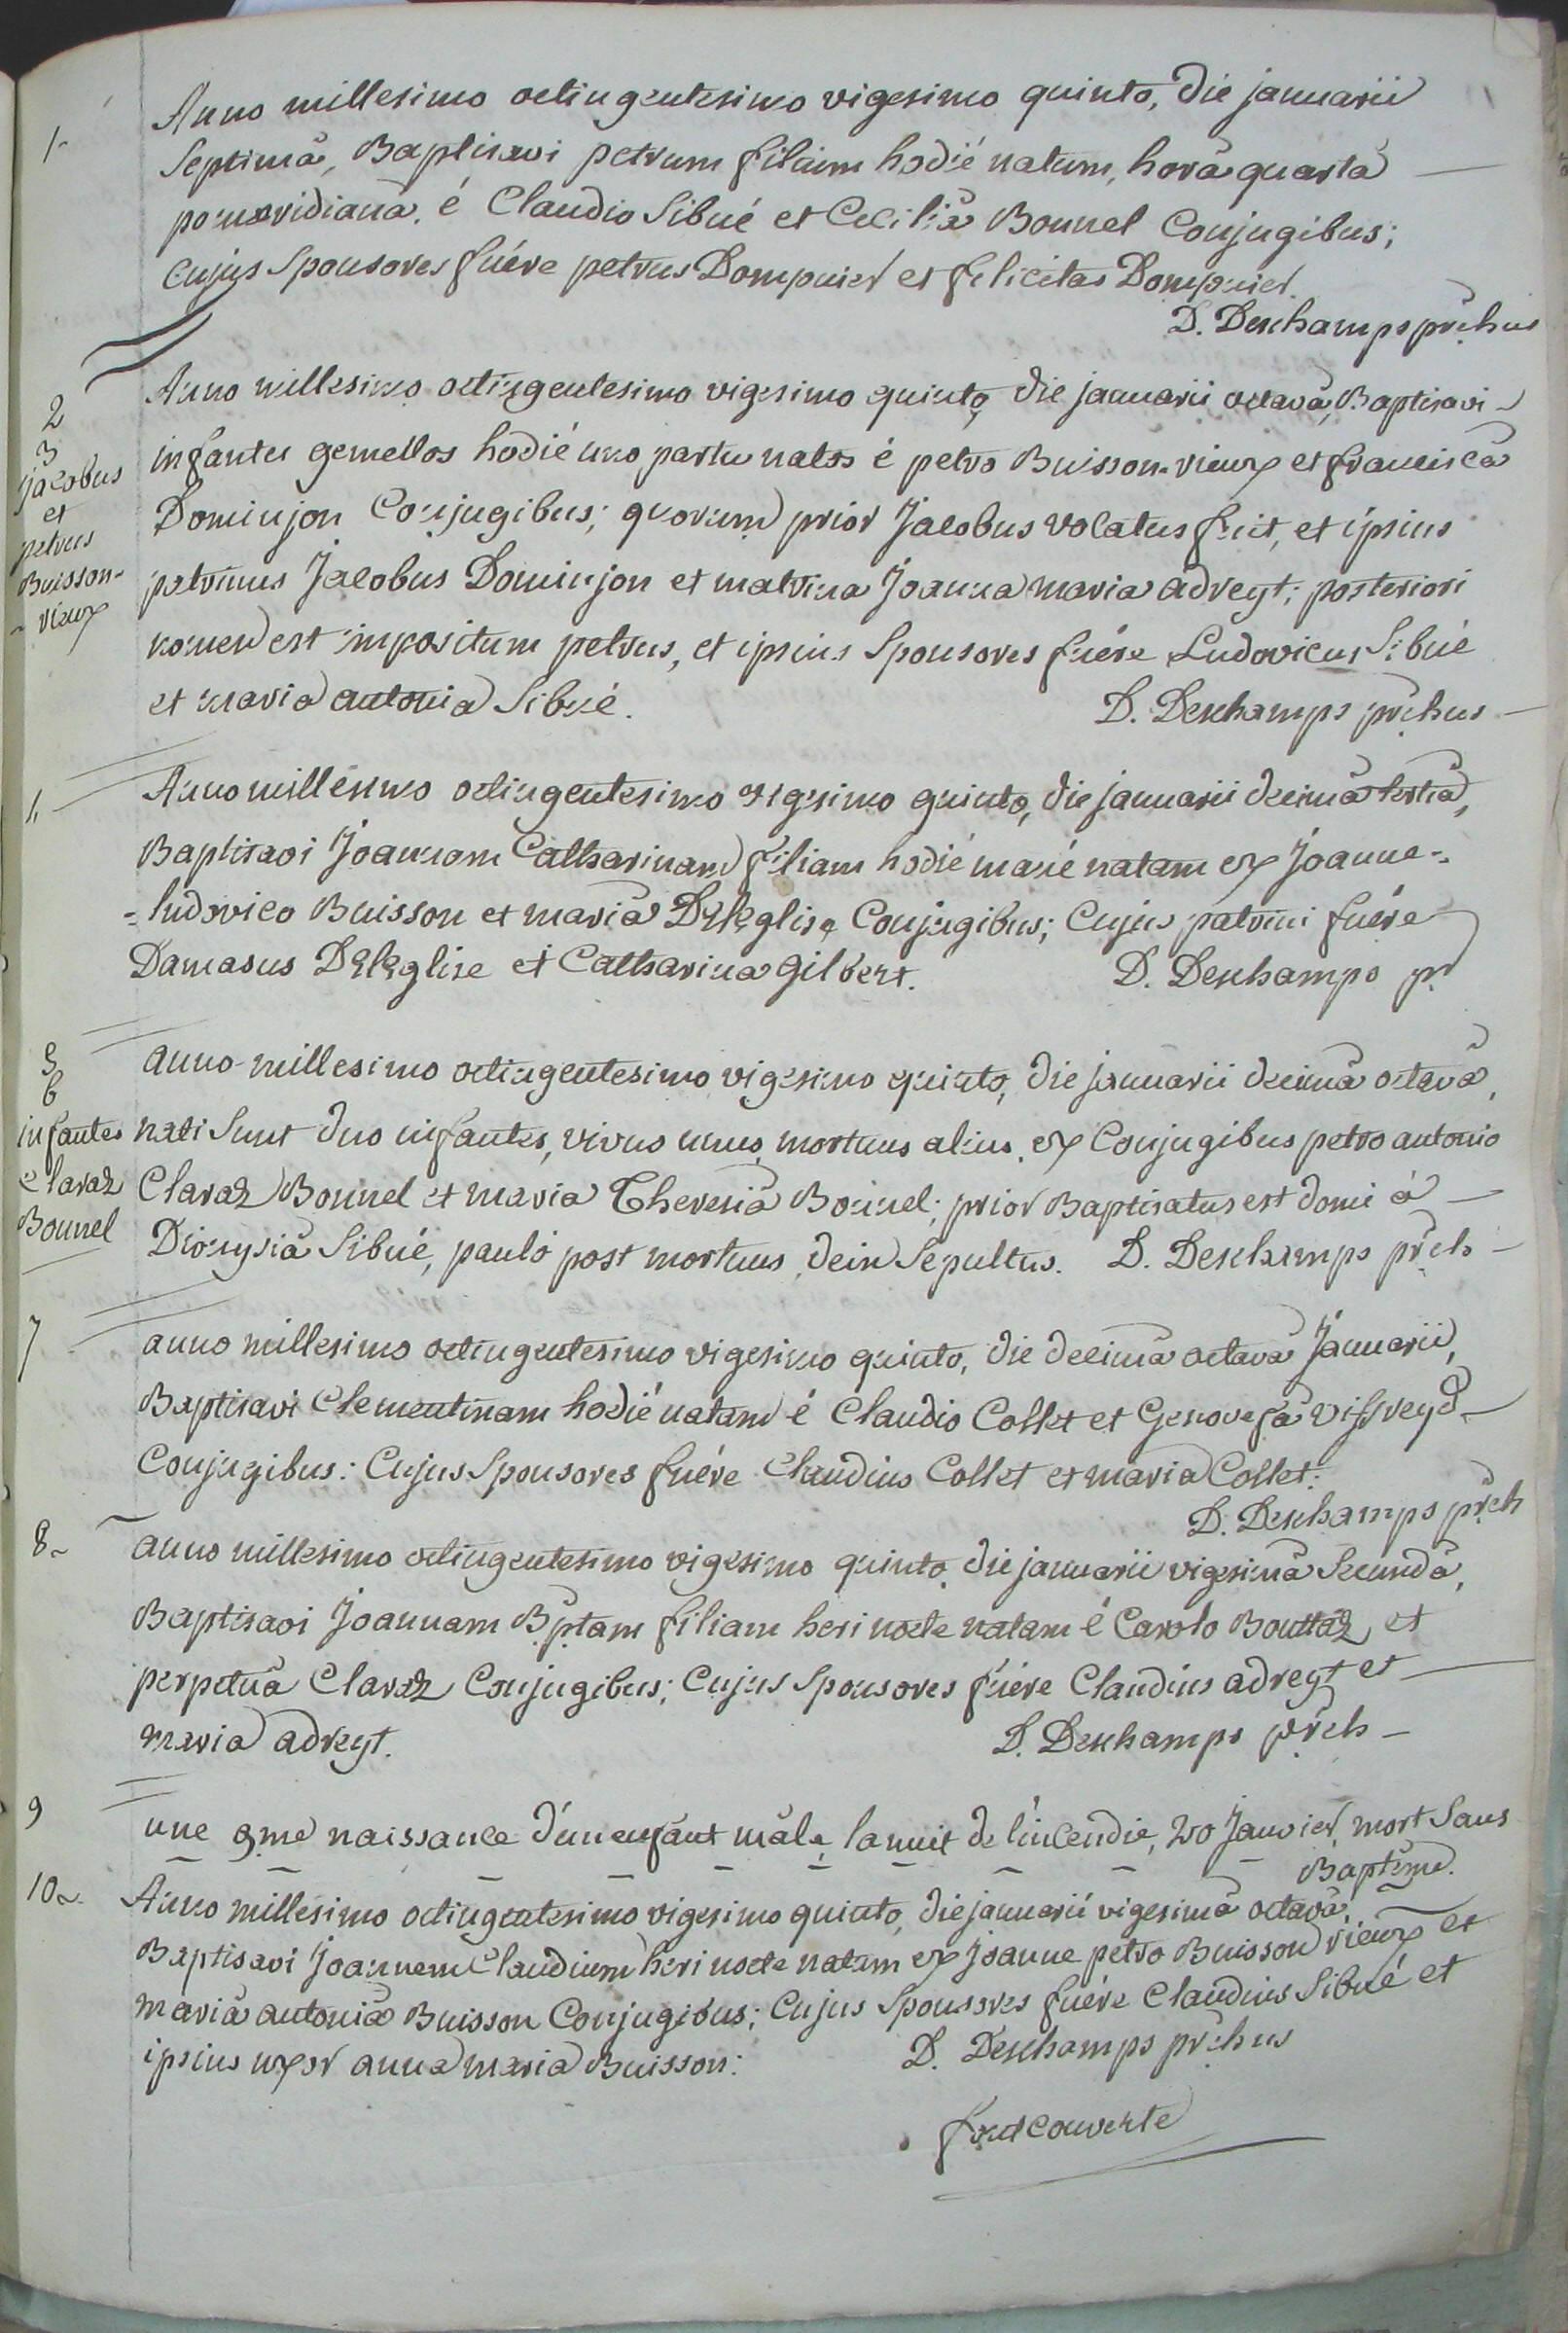 1- Anno millesimo octingentesimo vigesimo quinto, die januarii
Septimâ, Baptisavi petrum filium hodiè natum, horâ quartâ —
pomeridianâ, é Claudio Sibué et Ceciliâ Bonnel Conjugibus;
Cujus Sponsores fuére petrus Dompnier et felicitas Dompnier.
D. Deschamps prchus
2
3
jacobus
et
petrus
Buisson-
- vieux
Anno millesimo octingentesimo vigesimo quinto, die januarii octavâ, Baptisavi -
infantes gemellos hodié uno partu natos é petro Buisson-vieux et franciscâ
Dominjon Conjugibus; quorum prior Jacobus vocatus fuit, et ipsius
patrinus Jacobus Dominjon et matrina Joanna maria adreyt; posteriori
nomen est impositum petrus, et ipsius Sponsores fuére Ludovicus Sibué
et maria antonia Sibué.
D. Deschamps prchus —
Anno millesimo octingentesimo vigesimo quinto, die januarii decimâ tertiâ,
Baptisavi Joannam Catharinam filiam hodié manè natam ex Joanne-
-ludovico Buisson et mariâ Deléglise Conjugibus; Cujus patrini fuére
Damasus Deléglise et Catharina Gilbert.
D. Deschamps pr
5
6
infantes
Claraz
Bonnel
anno millesimo octingentesimo vigesimo quinto, die januarii decimâ octavâ,
nati Sunt duo infantes, vivus unus, mortuus alius, ex Conjugibus petro antonio
Claraz Bonnel et maria Theresiâ Bonnel; prior Baptisatus est domi à —
Dionysiâ Sibué, pauló post mortuus, dein Sepultus. D. Deschamps prch —
7 anno millesimo octingentesimo vigesimo quinto, die decimâ octavâ Januarii,
Baptisavi Clementinam hodié natam é Claudio Collet et Genovefâ viffreyd -
Conjugibus: Cujus Sponsores fuére Claudius Collet et maria Collet:
D. Deschamps prch
8- anno millesimo octingentesimo vigesimo quinto, die januarii vigesimâ Secundâ,
Baptisavi Joannam Bptam filiam heri nocte natam é Carolo Bouttaz et
perpetuâ Claraz Conjugibus; Cujus Sponsores fuére Claudius adreyt et —
maria adreyt.
D. Deschamps prch —
9 une 9me naissance d'un enfant mâle, la nuit de l'incendie, 20 Janvier, mort Sans
Baptême.
10- Anno millesimo octingentesimo vigesimo quinto, die januarii vigesimâ octavâ,
Baptisavi Joannem Claudium heri nocte natum ex Joanne petro Buisson vieux et
mariâ antoniâ Buisson Conjugibus; Cujus Sponsores fuére Claudius Sibué et
ipsius uxor anna maria Buisson:
D. Deschamps prchus
fontcouverte